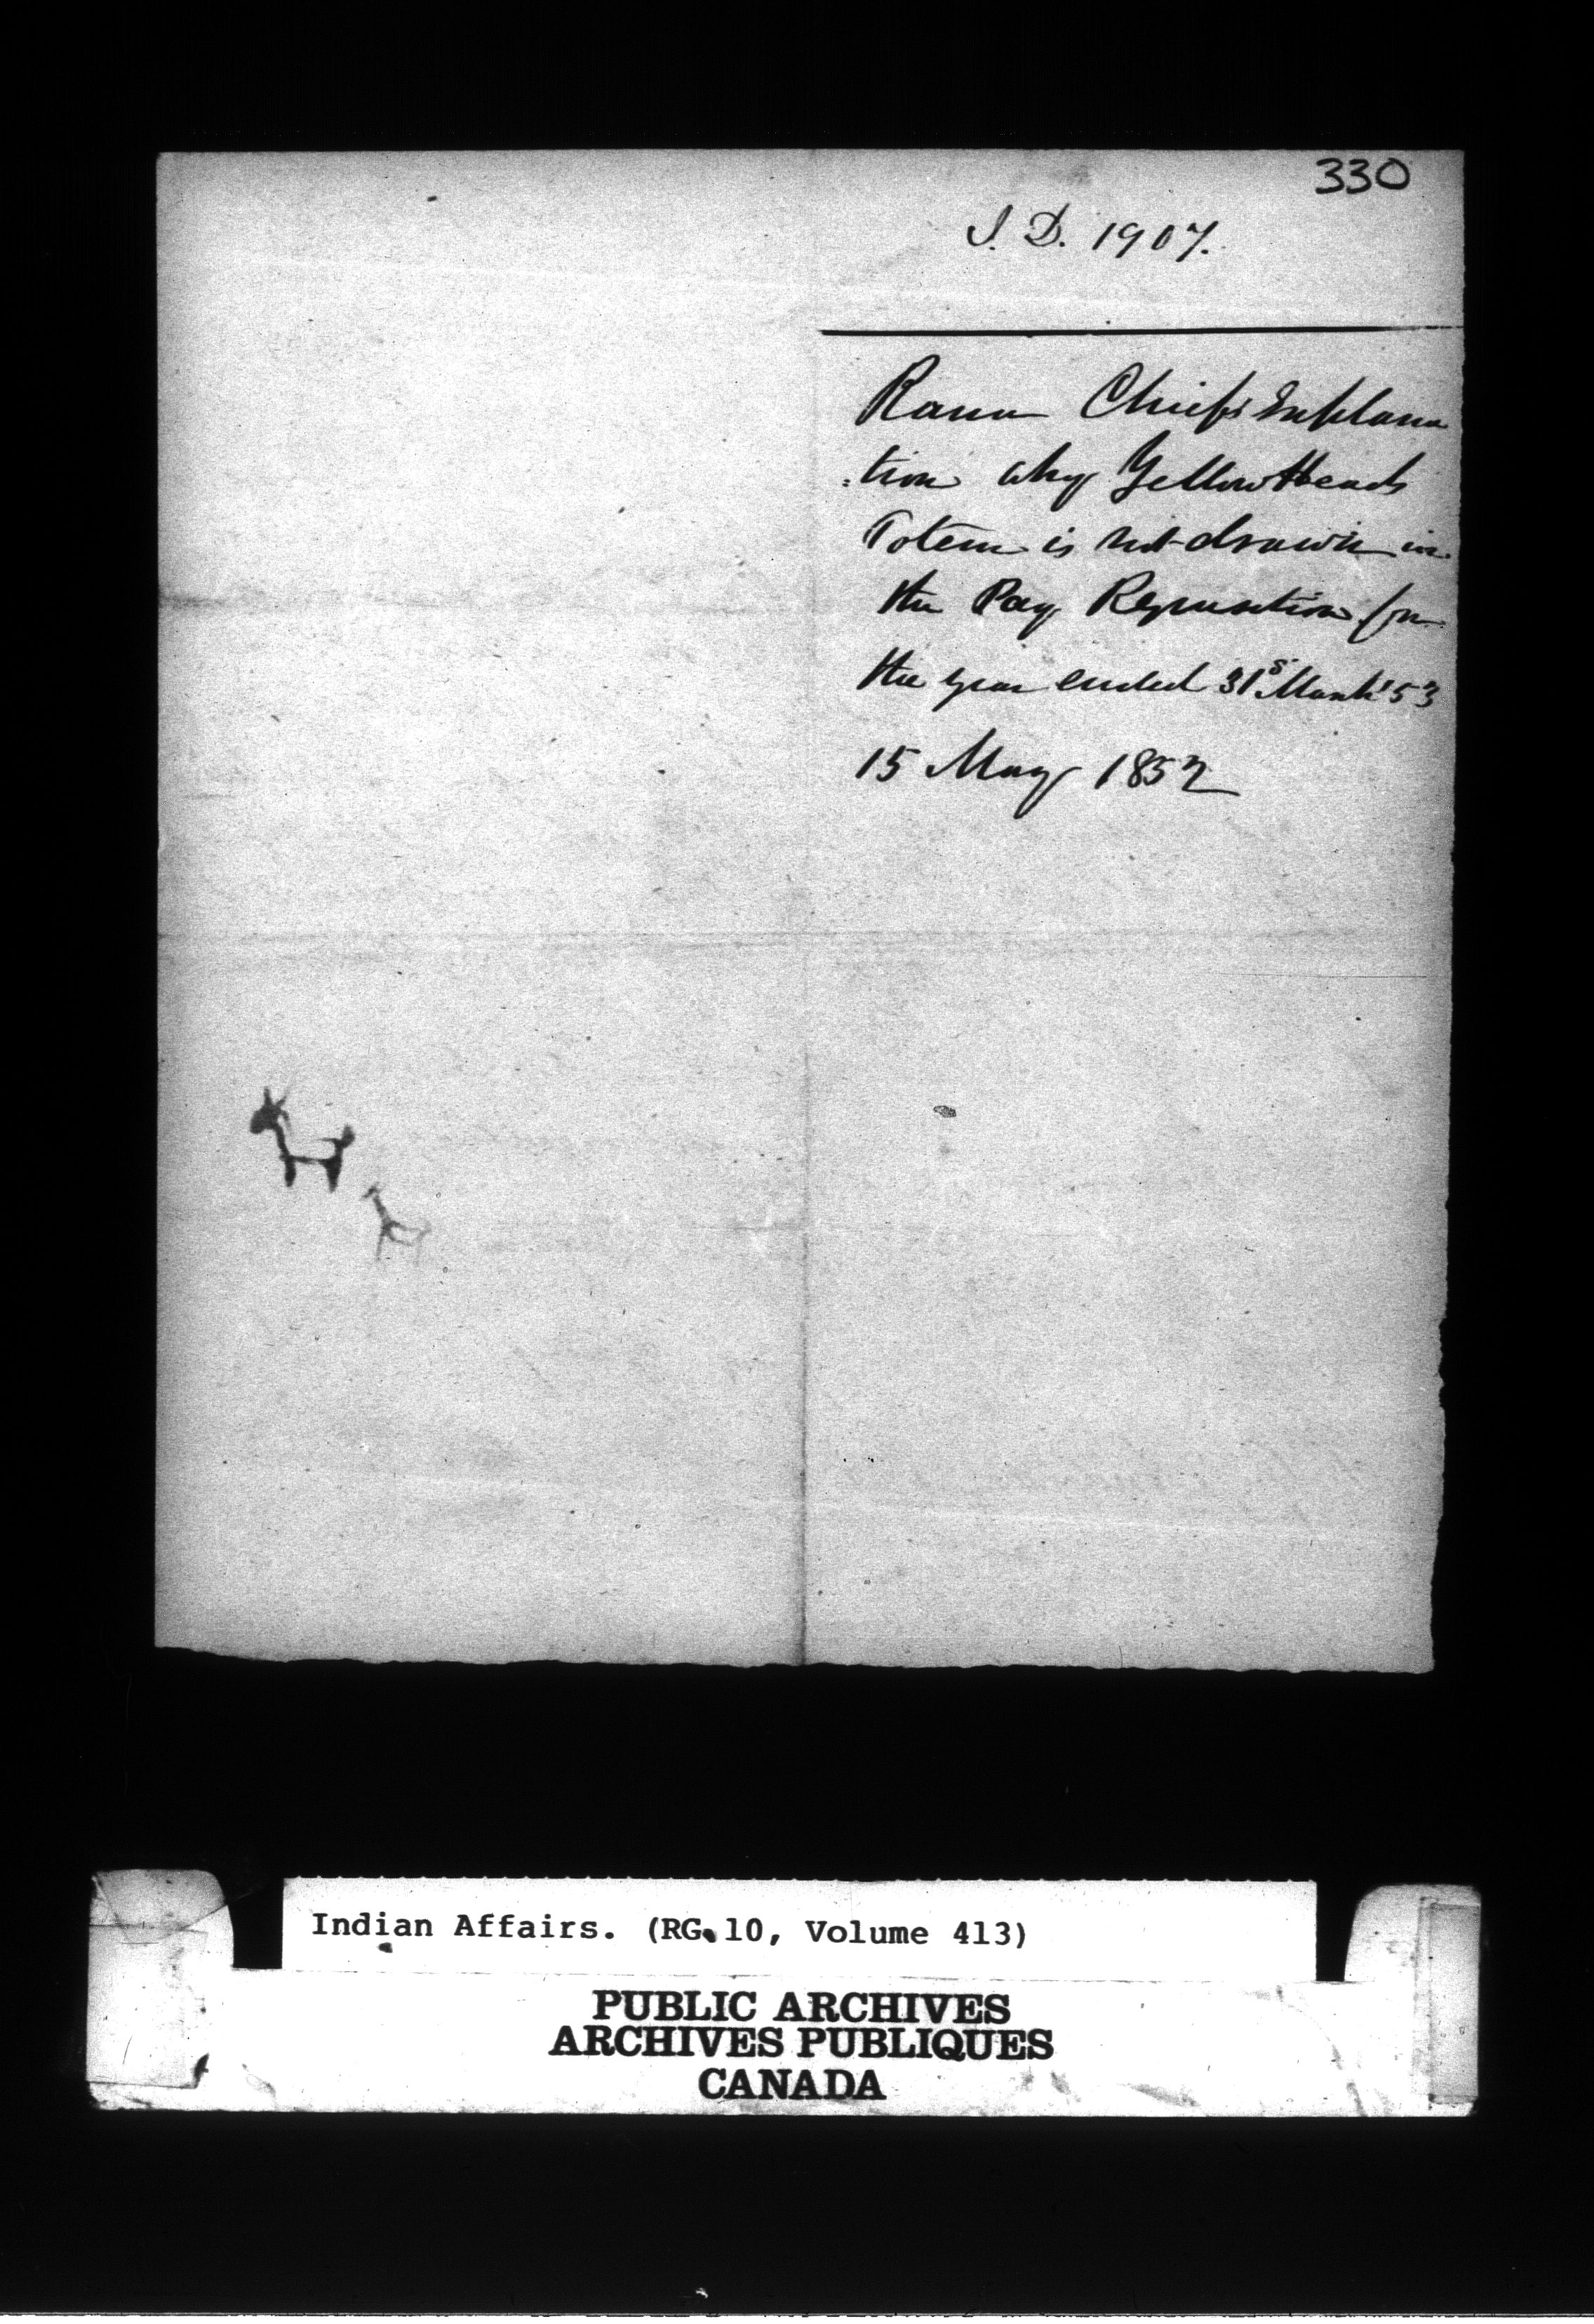 330
I. D. 1907.
Rama Chiefs Explana
:tion why Yellow Heads
Totem is not drawn in
the Pay Requisition for
the year ended 31st March '53
15 May 1852
Indian Affairs. (RG 10, Volume 413)
PUBLIC ARCHIVES
ARCHIVES PUBLIQUES
CANADA